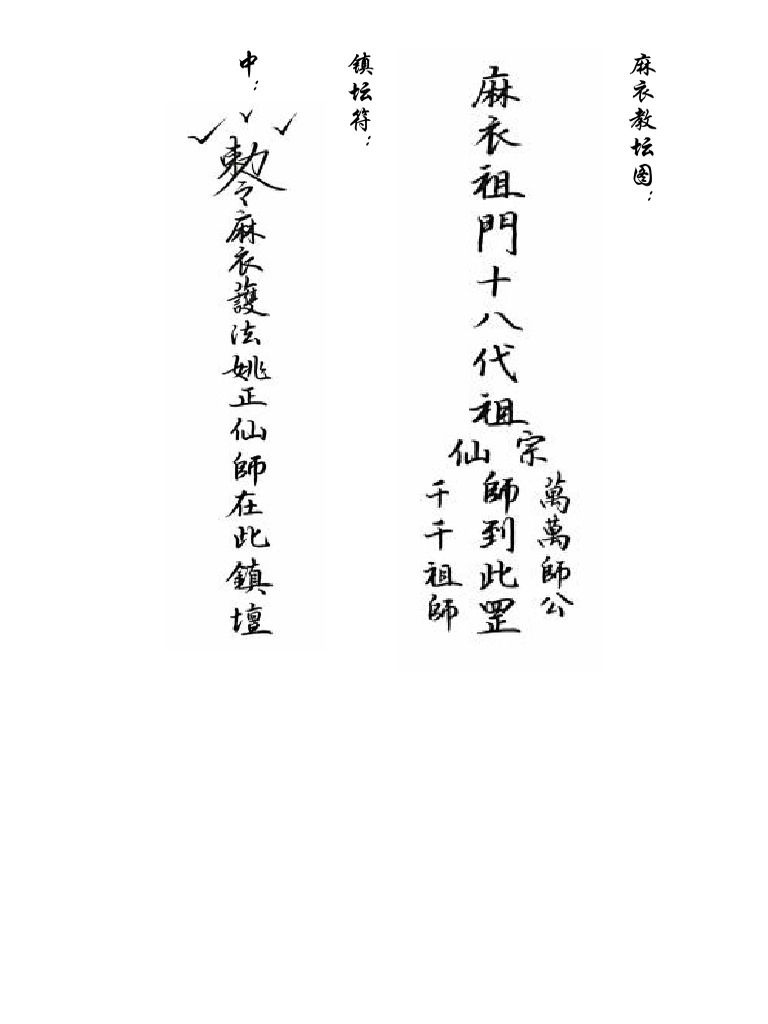 麻衣教坛图：
麻衣祖門十八代祖
宗
仙
萬萬師公
師到此罡
千千祖師
镇坛符：
中：
敕令麻衣護法姚正仙師在此鎮壇